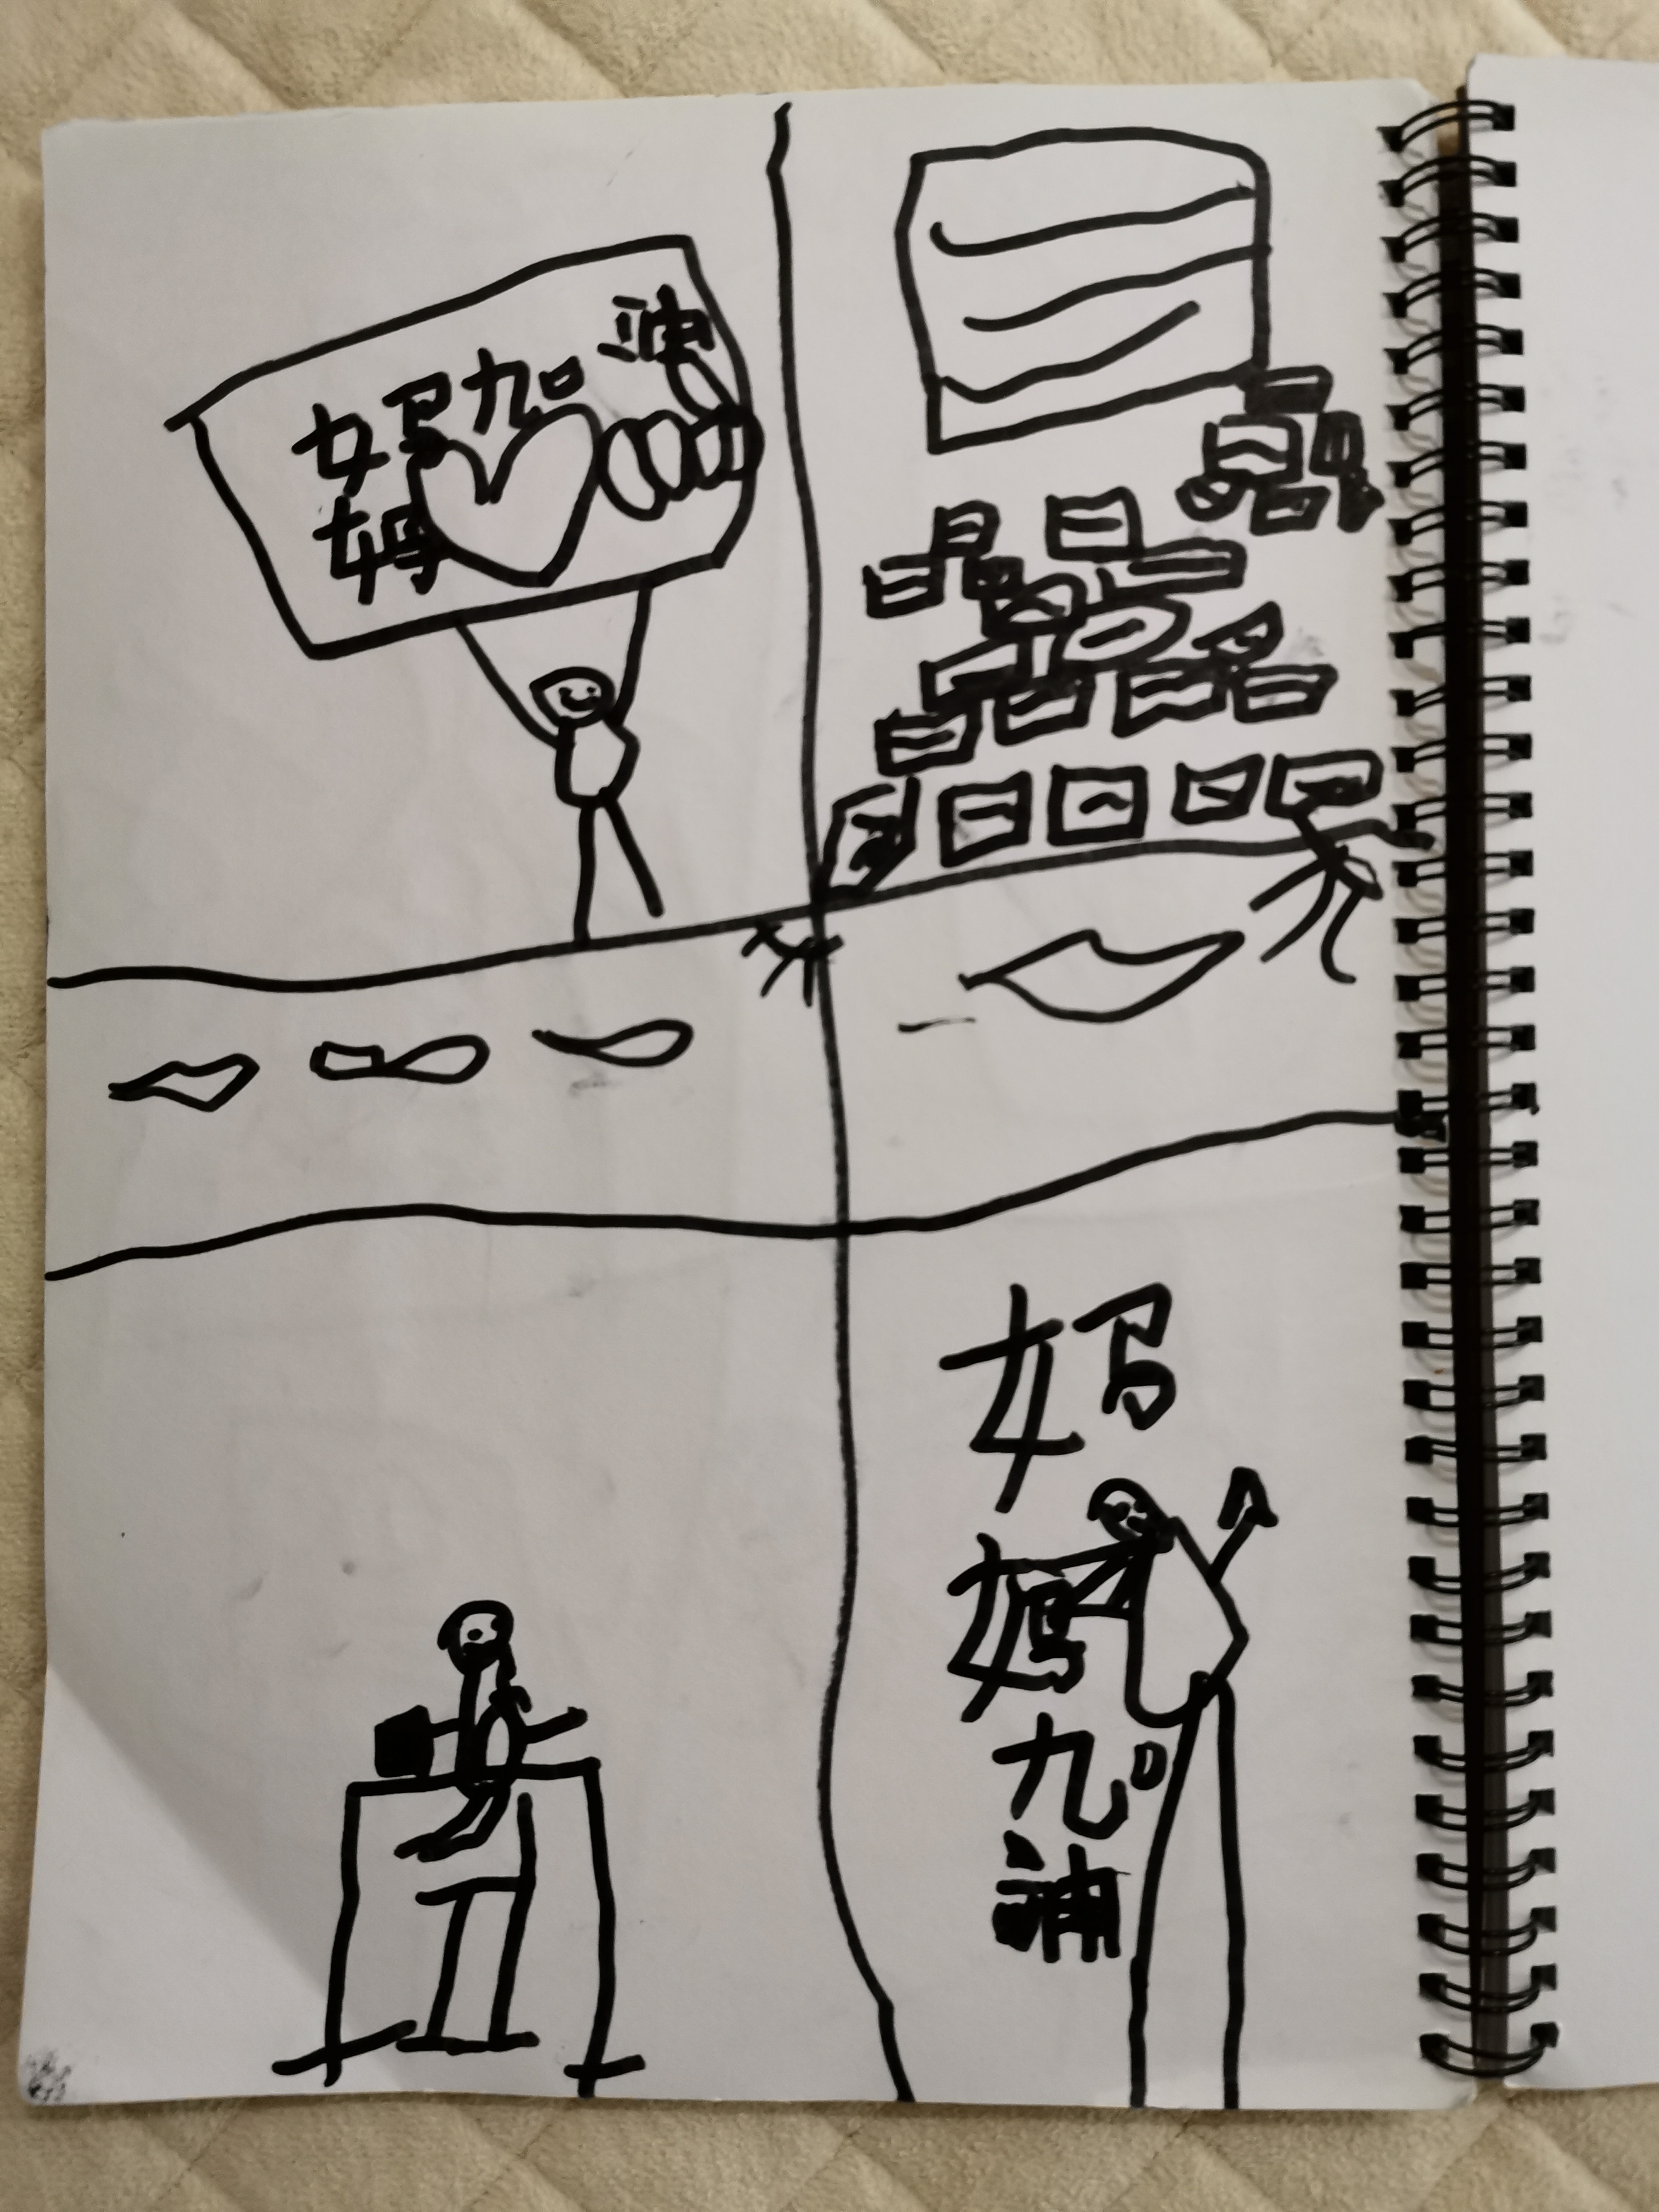 妈加油
妈
妈
妈
加
油